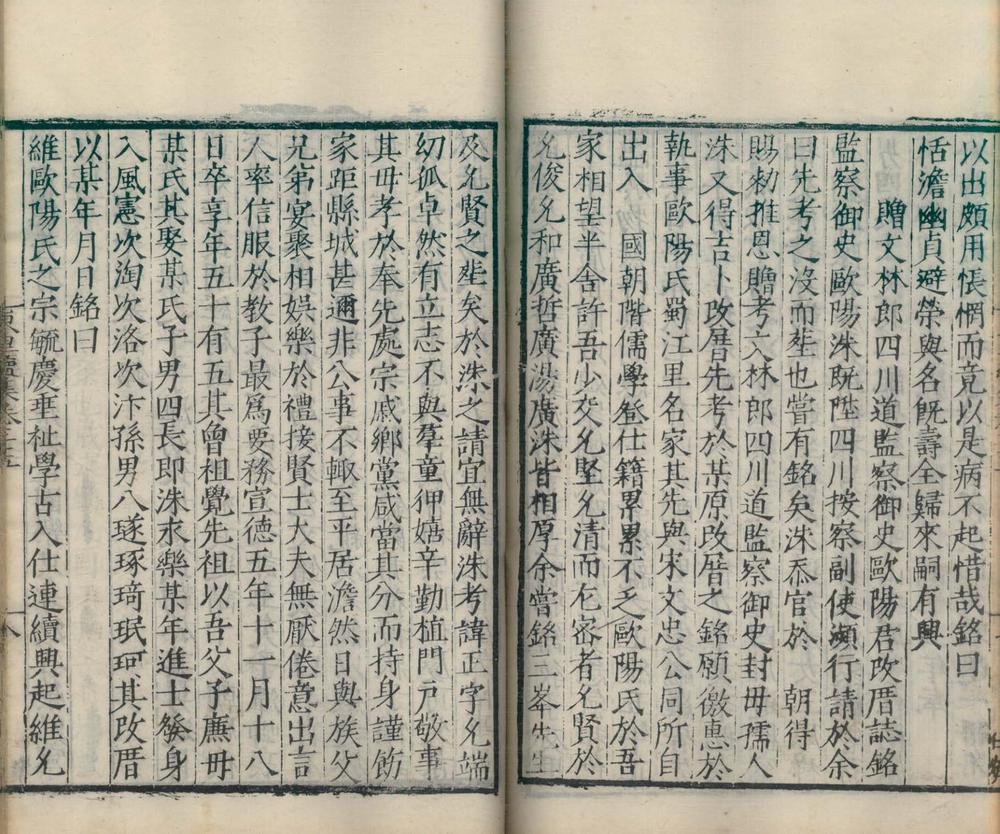 以出頗用悵惘而竟以是病不起惜哉銘曰
恬澹幽貞避榮與名既壽全歸來嗣有興
贈文林郎四川道監察御史歐陽君改厝誌銘
監察御史歐陽洙既陞四川按察副使瀕行請於余
曰先考之沒而塟也嘗有銘矣洙忝官於 朝得
賜勑推恩贈考文林郎四川道監察御史封母孺人
洙又得吉卜改厝先考於某原改厝之銘願徼惠於
執事歐陽氏蜀江里名家其先與宋文忠公同所自
出入 國朝階儒學登仕籍累累不乏歐陽氏於吾
家相望半舍許吾少交允堅允清而允密者允賢於
允俊允和廣哲廣湯廣洙皆相厚余嘗銘三峯先生
及允賢之塟矣於洙之請宜無辭洙考諱正字允端
幼孤卓然有立志不與羣童狎嬉辛勤植門戶敬事
其母孝於奉先處宗戚鄉黨咸當其分而持身謹飭
家距縣城甚邇非公事不輒至平居澹然日與族父
兄弟宴聚相娛樂於禮接賢士大夫無厭倦意出言
人率信服於教子最爲要務宣德五年十一月十八
日卒享年五十有五其曾祖覺先祖以吾父子廉母
某氏其娶某氏子男四長即洙永樂某年進士發身
入風憲次淘次洛次汴孫男八璲琢琦珉珂其改厝
以某年月日銘曰
維歐陽氏之宗毓慶垂祉學古入仕連續興起維允